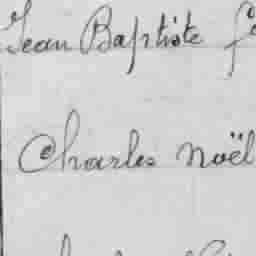 Jean Baptiste
Charles Noël